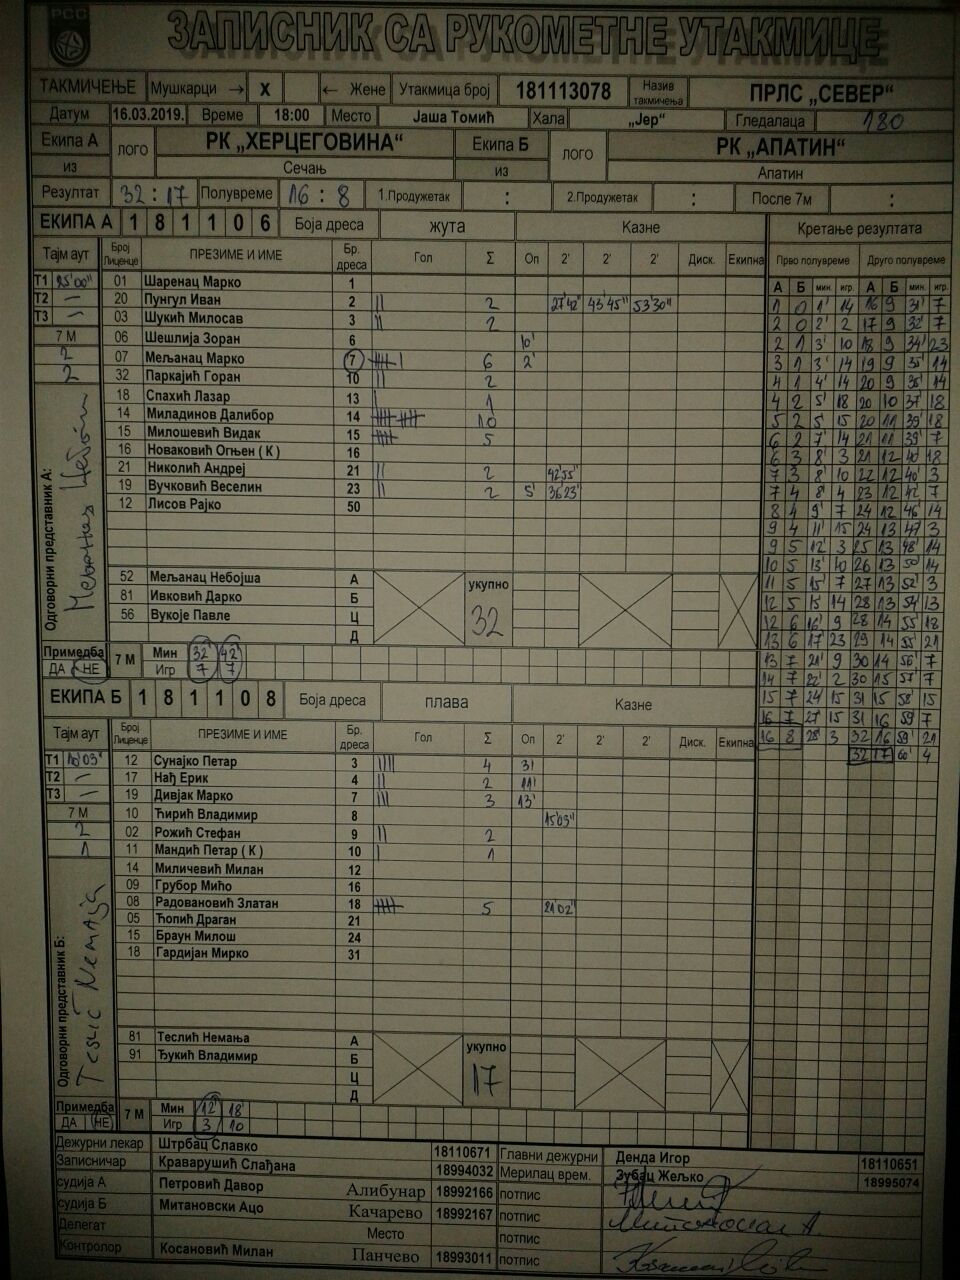 РСС
ЗАПИСНИК СА РУКОМЕТНЕ УТАКМИЦЕ
ТАКМИЧЕЊЕ Мушкарци → X ← Жене Утакмица број 181113078 Назив такмичења ПРЛС „СЕВЕР“
Датум 16.03.2019. Време 18:00 Место Јаша Томић Хала „Јер“ Гледалаца 180
Екипа А ЛОГО РК „ХЕРЦЕГОВИНА“ Екипа Б ЛОГО РК „АПАТИН“
из Сечањ из Апатин
Резултат 32 : 17 Полувреме 16 : 8 1.Продужетак : 2.Продужетак : После 7м :
ЕКИПА А 1 8 1 1 0 6 Боја дреса жута Казне Кретање резултата
Тајм аут Број Лиценце ПРЕЗИМЕ И ИМЕ Бр. дреса Гол Σ Оп 2' 2' 2' Диск. Екипна Прво полувреме Друго полувреме
А Б мин. игр. А Б мин. игр.
Т1 25'00" 01 Шаренац Марко 1
Т2 — 20 Пунгул Иван 2 || 2 27'42" 43'45" 53'30"
Т3 — 03 Шукић Милосав 3 || 2
7 М 06 Шешлија Зоран 6 10'
2 07 Мељанац Марко 7 6 2'
2 32 Паркајић Горан 10 || 2
18 Спахић Лазар 13 | 1
14 Миладинов Далибор 14 10
15 Милошевић Видак 15 5
16 Новаковић Огњен ( К ) 16
21 Николић Андреј 21 || 2 42'55"
19 Вучковић Веселин 23 || 2 5' 36'23"
12 Лисов Рајко 50
Одговорни представник А:
52 Мељанац Небојша А укупно
81 Ивковић Дарко Б 32
56 Вукоје Павле Ц
Д
Примедба 7 М Мин 32' 42'
ДА НЕ Игр 7 7
1 0 1' 14 16 9 31' 7
2 0 2' 2 17 9 32' 7
2 1 3' 10 18 9 34' 23
3 1 3' 14 19 9 35' 14
4 1 4' 14 20 9 35' 14
4 2 5' 18 20 10 37' 18
5 2 5' 15 20 11 39' 18
6 2 7' 14 21 11 39' 7
6 3 8' 3 21 12 40' 18
7 3 8' 10 22 12 40' 3
7 4 8' 4 23 12 42' 7
8 4 9' 7 24 12 46' 14
9 4 11' 15 24 13 47' 3
9 5 12' 3 25 13 48' 14
10 5 13' 10 26 13 50' 14
11 5 15' 7 27 13 52' 3
12 5 15 14 28 13 54' 13
12 6 16' 9 28 14 55' 18
13 6 17' 23 29 14 55' 21
13 7 21' 9 30 14 56' 7
14 7 22' 2 30 15 57' 7
15 7 24' 15 31 15 58' 15
16 7 27' 15 31 16 59' 7
16 8 28' 3 32 16 59' 21
32 17 60' 4
ЕКИПА Б 1 8 1 1 0 8 Боја дреса плава Казне
Тајм аут Број Лиценце ПРЕЗИМЕ И ИМЕ Бр. дреса Гол Σ Оп 2' 2' 2' Диск. Екипна
Т1 10'03" 12 Сунајко Петар 3 |||| 4 31'
Т2 — 17 Нађ Ерик 4 || 2 11'
Т3 — 19 Дивјак Марко 7 ||| 3 13'
7 М 10 Ћирић Владимир 8 15'03"
2 02 Рожић Стефан 9 || 2
1 11 Мандић Петар ( К ) 10 | 1
14 Миличевић Милан 12
09 Грубор Мићо 16
08 Радовановић Златан 18 5 21'02"
05 Ћопић Драган 21
15 Браун Милош 24
18 Гардијан Мирко 31
Одговорни представник Б:
81 Теслић Немања А укупно
91 Ђукић Владимир Б 17
Ц
Д
Примедба 7 М Мин 12' 18'
ДА НЕ Игр 3 10
Дежурни лекар Штрбац Славко 18110671 Главни дежурни Денда Игор 18110651
Записничар Краварушић Слађана 18994032 Мерилац врем. Зубац Жељко 18995074
судија А Петровић Давор Алибунар 18992166 потпис
судија Б Митановски Ацо Качарево 18992167 потпис
Делегат Место потпис
Контролор Косановић Милан Панчево 18993011 потпис